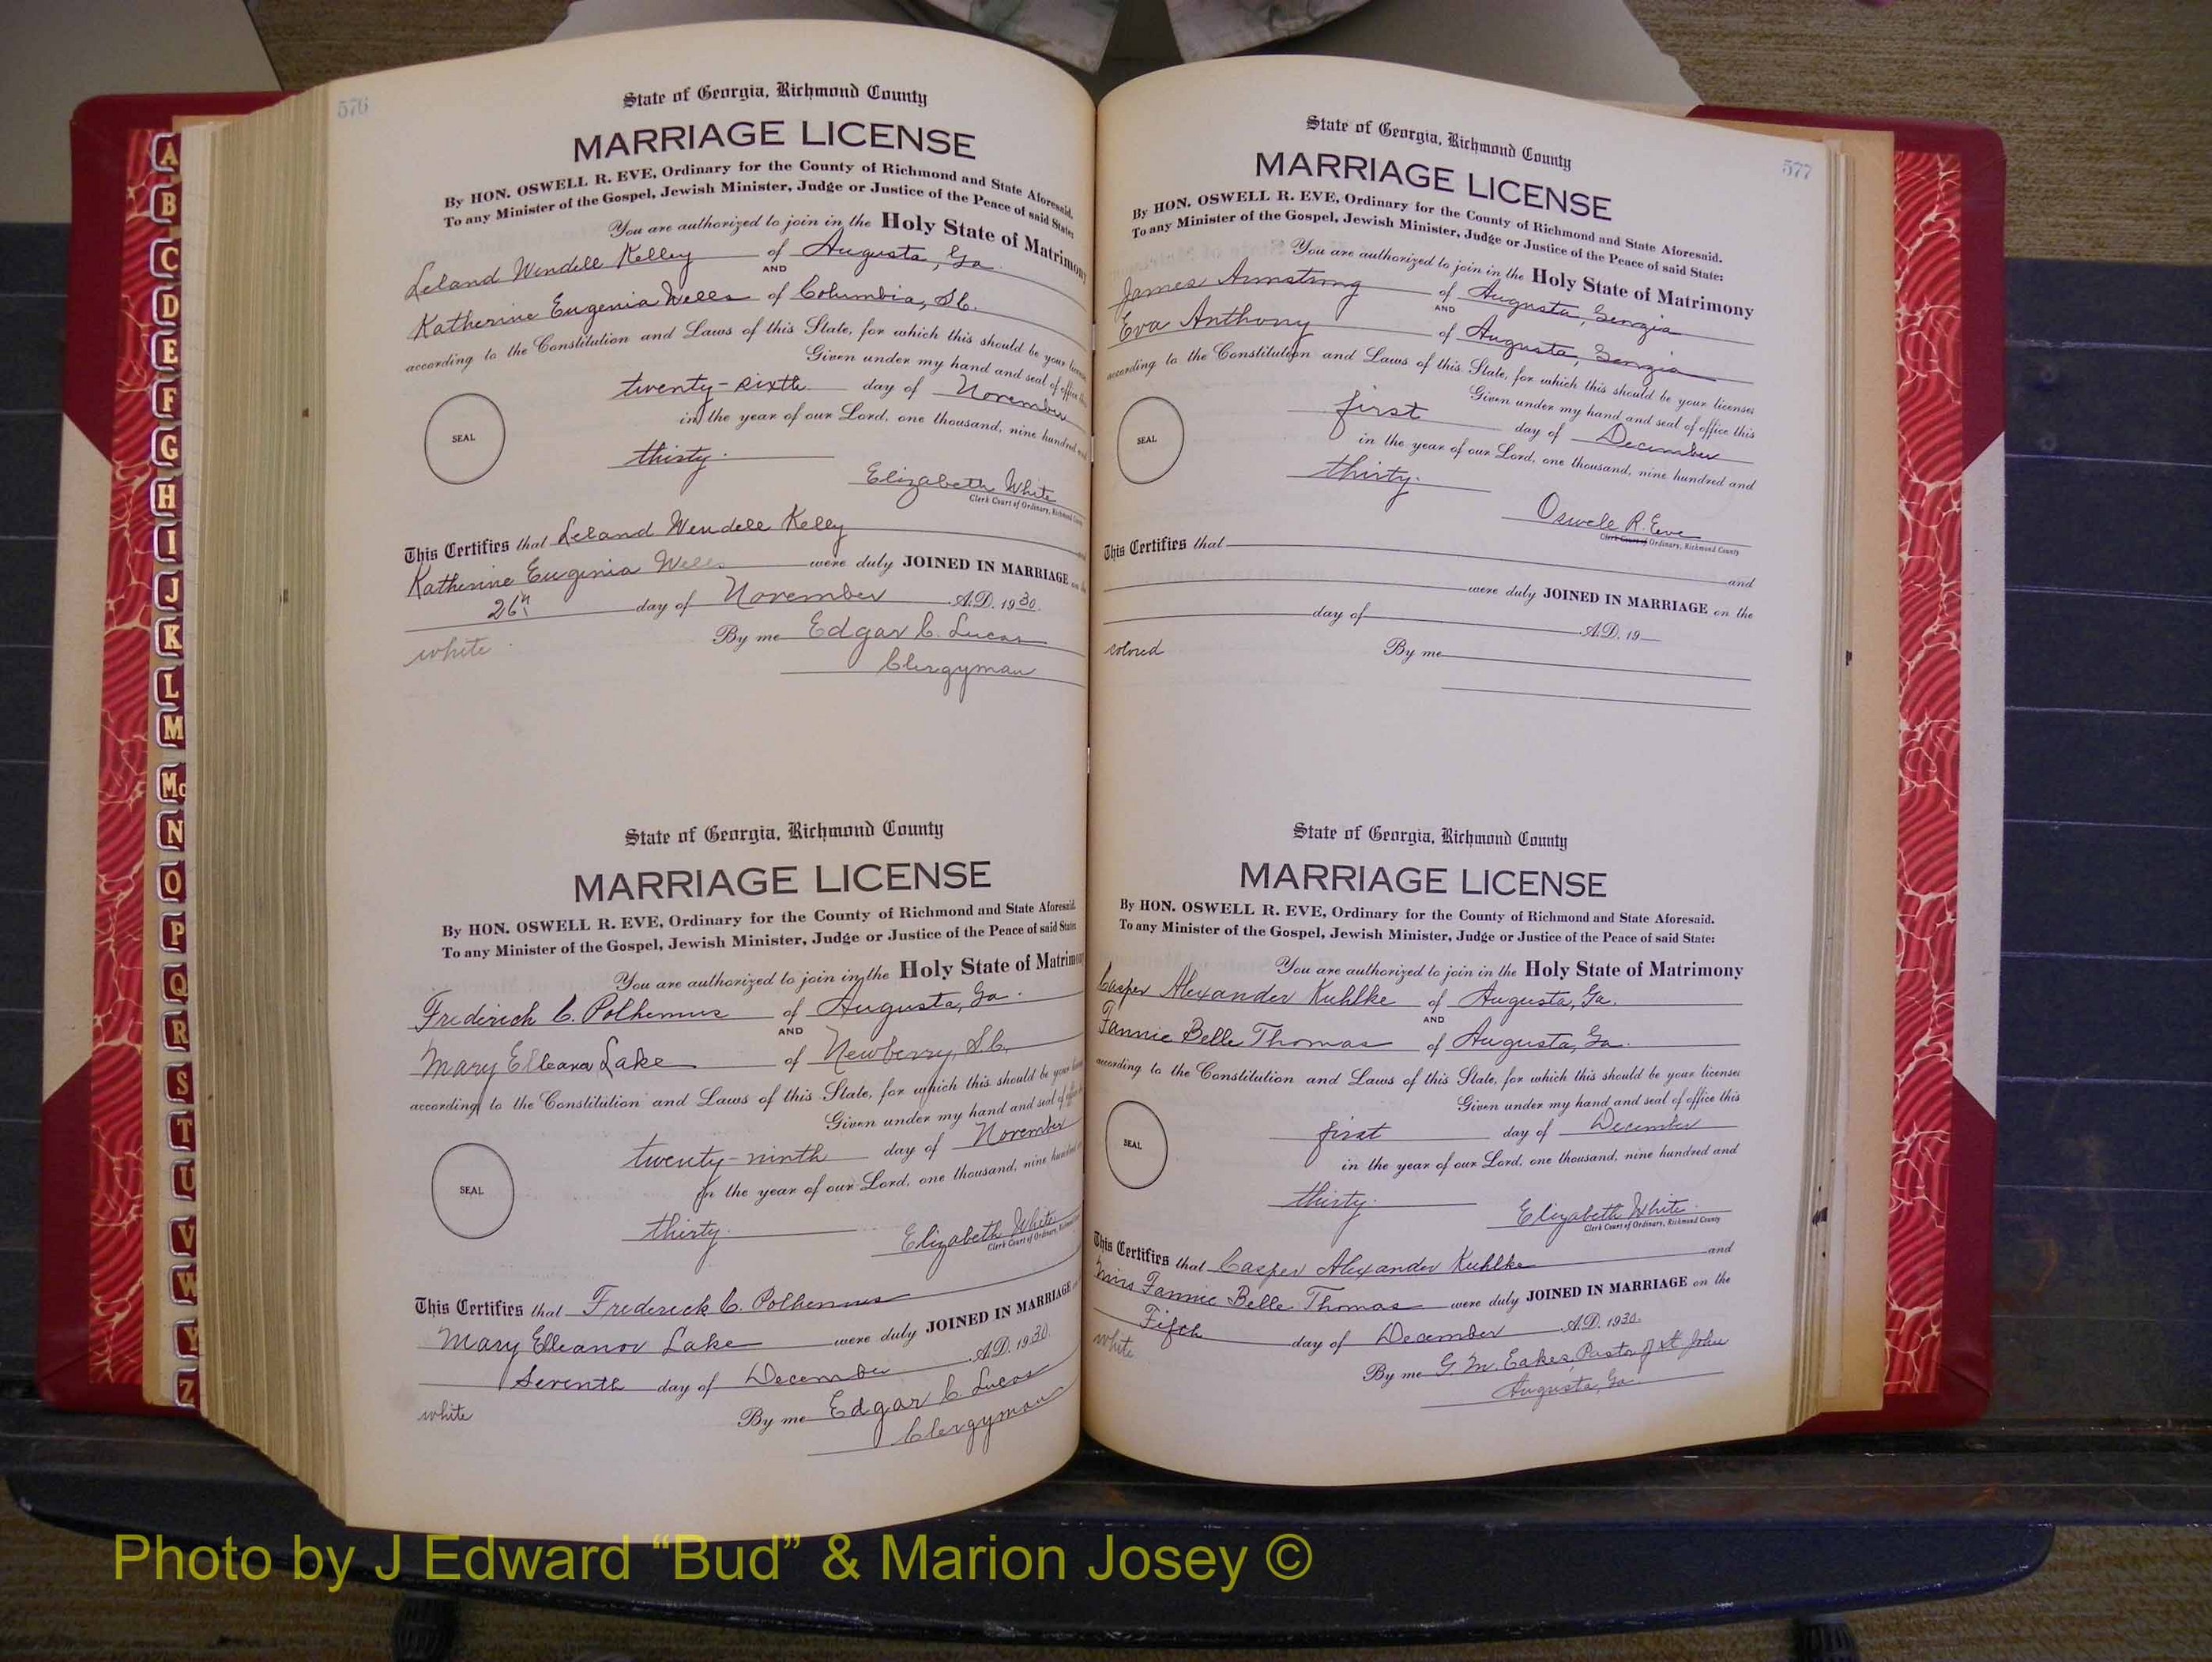 A
B
C
D
E
F
G
H
I
J
K
L
M
Mc
N
O
P
Q
R
S
T
U
V
W
Y
Z
576
State of Georgia, Richmond County
MARRIAGE LICENSE
By HON. OSWELL R. EVE, Ordinary for the County of Richmond and State Aforesaid.
To any Minister of the Gospel, Jewish Minister, Judge or Justice of the Peace of said State:
You are authorized to join in the Holy State of Matrimony
Leland Wendell Kelley of Augusta, Ga.
AND
Katherine Eugenia Wells of Columbia, S.C.
according to the Constitution and Laws of this State, for which this should be your license
Given under my hand and seal of office this
twenty-sixth day of November
in the year of our Lord, one thousand, nine hundred and
SEAL
thirty.
Elizabeth White
Clerk Court of Ordinary, Richmond County
This Certifies that Leland Wendell Kelly and
Katherine Euginia Wells were duly JOINED IN MARRIAGE on the
26th day of November A.D. 1930.
white By me Edgar C. Lucas
Clergyman
State of Georgia, Richmond County
MARRIAGE LICENSE
By HON. OSWELL R. EVE, Ordinary for the County of Richmond and State Aforesaid.
To any Minister of the Gospel, Jewish Minister, Judge or Justice of the Peace of said State:
You are authorized to join in the Holy State of Matrimony
Frederich C. Polhemus of Augusta, Ga.
AND
Mary Elleanor Lake of Newberry, S.C.
according to the Constitution and Laws of this State, for which this should be your license
Given under my hand and seal of office
twenty-ninth day of November
In the year of our Lord, one thousand, nine hundred
SEAL
thirty.
Elizabeth White
Clerk Court of Ordinary, Richmond
This Certifies that Frederick C. Polhemus
Mary Elleanor Lake were duly JOINED IN MARRIAGE
Seventh day of December A.D. 1930.
white By me Edgar C. Lucas
Clergyman
577
State of Georgia, Richmond County
MARRIAGE LICENSE
By HON. OSWELL R. EVE, Ordinary for the County of Richmond and State Aforesaid.
To any Minister of the Gospel, Jewish Minister, Judge or Justice of the Peace of said State:
You are authorized to join in the Holy State of Matrimony
James Armstrong of Augusta, Georgia
AND
Eva Anthony of Augusta, Georgia
according to the Constitution and Laws of this State, for which this should be your licenses
Given under my hand and seal of office this
first day of December
in the year of our Lord, one thousand, nine hundred and
SEAL
thirty.
Oswell R. Eve
Clerk Court of Ordinary, Richmond County
This Certifies that
and
were duly JOINED IN MARRIAGE on the
day of A.D. 19
colored By me
State of Georgia, Richmond County
MARRIAGE LICENSE
By HON. OSWELL R. EVE, Ordinary for the County of Richmond and State Aforesaid.
To any Minister of the Gospel, Jewish Minister, Judge or Justice of the Peace of said State:
You are authorized to join in the Holy State of Matrimony
Casper Alexander Kuhlke of Augusta, Ga.
AND
Fannie Belle Thomas of Augusta, Ga.
according to the Constitution and Laws of this State, for which this should be your licenses
Given under my hand and seal of office this
first day of December
in the year of our Lord, one thousand, nine hundred and
SEAL
thirty.
Elizabeth White
Clerk Court of Ordinary, Richmond County
This Certifies that Casper Alexander Kuhlke and
Miss Fannie Belle Thomas were duly JOINED IN MARRIAGE on the
Fifth day of December A.D. 1930.
white By me G. M. Eakes, Pastor of St John
Augusta, Ga.
Photo by J Edward “Bud” & Marion Josey ©